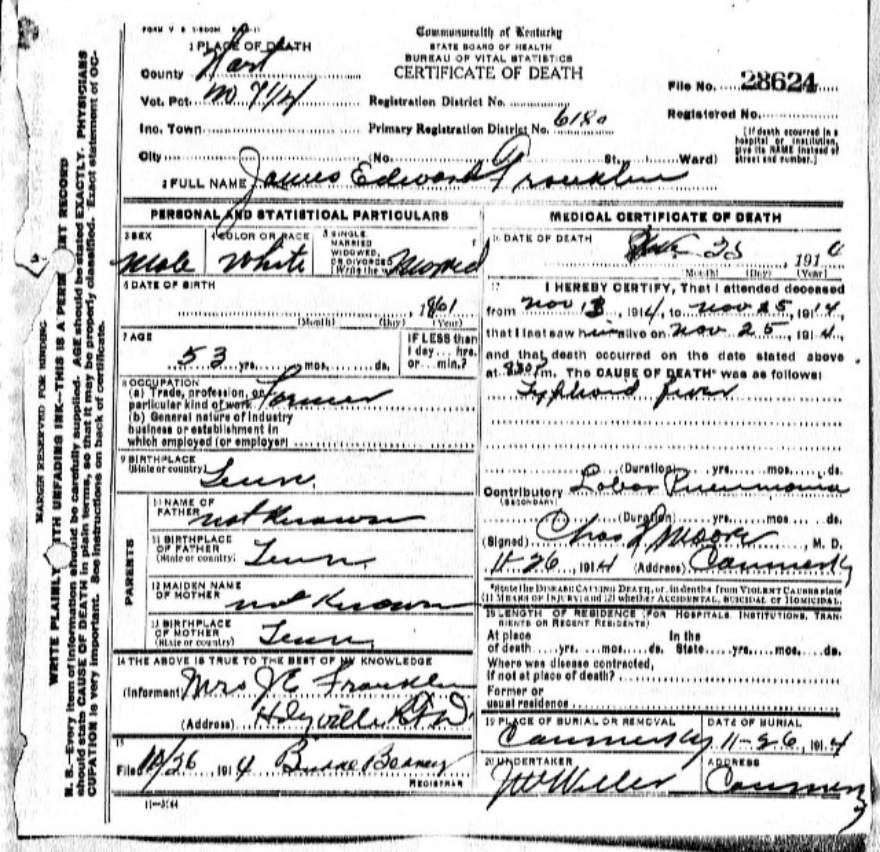 Commonwealth of Kentucky
STATE BOARD OF HEALTH
BUREAU OF VITAL STATISTICS
CERTIFICATE OF DEATH
1 PLACE OF DEATH
County Hart
Vot. Pct.
Inc. Town
City (No. St. Ward)
Registration District No.
Primary Registration District No. 6180
File No. 28624
Registered No.
(If death occurred in a hospital or institution, give its NAME instead of street and number.)
2 FULL NAME James Edward Franklin
PERSONAL AND STATISTICAL PARTICULARS
3 SEX Male
4 COLOR OR RACE White
5 SINGLE, MARRIED WIDOWED, OR DIVORCED (Write the word) Married
6 DATE OF BIRTH
1861
(Month) (Day) (Year)
7 AGE
53 yrs. mos. ds.
IF LESS than
1 day... hrs.
or... min.?
8 OCCUPATION
(a) Trade, profession, or
particular kind of work Farmer
(b) General nature of industry
business or establishment in
which employed (or employer)
9 BIRTHPLACE
(State or country) Tenn.
PARENTS
10 NAME OF
FATHER not Known
11 BIRTHPLACE
OF FATHER
(State or country) Tenn.
12 MAIDEN NAME
OF MOTHER not Known
13 BIRTHPLACE
OF MOTHER
(State or country) Tenn
14 THE ABOVE IS TRUE TO THE BEST OF MY KNOWLEDGE
(Informant) Mrs J E Franklin
(Address)
15
Filed 1914
REGISTRAR
11-3184
MEDICAL CERTIFICATE OF DEATH
16 DATE OF DEATH
25 191
(Month) (Day) (Year)
17 I HEREBY CERTIFY, That I attended deceased
from Nov 1914, to Nov 25, 1914,
that I last saw him alive on Nov 25, 1914,
and that death occurred on the date stated above
at m. The CAUSE OF DEATH* was as follows:
Typhoid fever
(Duration) yrs. mos. ds.
Contributory Lobar Pneumonia
(SECONDARY)
(Duration) yrs. mos. ds.
(Signed) Chas Moore, M. D.
11-26, 1914 (Address)
*State the DISEASE CAUSING DEATH, or, in deaths from VIOLENT CAUSES state
(1) MEANS OF INJURY; and (2) whether ACCIDENTAL, SUICIDAL or HOMICIDAL.
18 LENGTH OF RESIDENCE (FOR HOSPITALS, INSTITUTIONS, TRANSIENTS OR RECENT RESIDENTS)
At place In the
of death yrs. mos. ds. State yrs. mos. ds.
Where was disease contracted,
If not at place of death?
Former or
usual residence
19 PLACE OF BURIAL OR REMOVAL
DATE OF BURIAL
11-26, 1914
20 UNDERTAKER
ADDRESS
MARGIN RESERVED FOR BINDING
WRITE PLAINLY WITH UNFADING INK—THIS IS A PERM NT RECORD
N. B.—Every item of information should be carefully supplied. AGE should be stated EXACTLY. PHYSICIANS
should state CAUSE OF DEATH in plain terms, so that it may be properly classified. Exact statement of OC-
CUPATION is very important. See instructions on back of certificate.